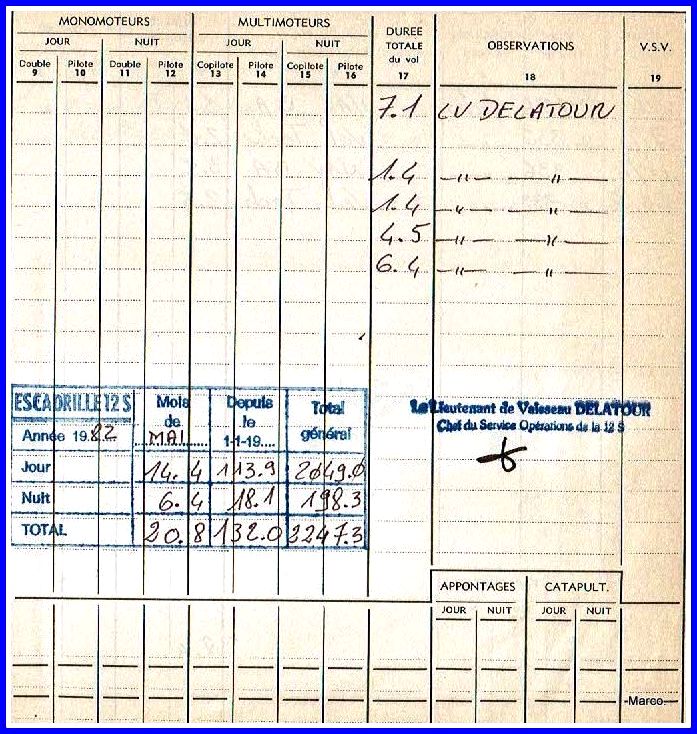 MONOMOTEURS MULTIMOTEURS DUREE TOTALE du vol OBSERVATIONS V.S.V.
JOUR NUIT JOUR NUIT
Double Pilote Double Pilote Copilote Pilote Copilote Pilote
9 10 11 12 13 14 15 16 17 18 19
7.1 LV DELATOUR
1.4 —〃— —〃—
1.4 —〃— —〃—
4.5 —〃— —〃—
6.4 —〃— —〃—
ESCADRILLE 12 S Mois de MAI Depuis le 1-1-19.... Total général
Année 19.82
Jour 14.4 113.9 2049.0
Nuit 6.4 18.1 198.3
TOTAL 20.8 132.0 2247.3
Le Lieutenant de Vaisseau DELATOUR
Chef du Service Opérations de la 12 S
APPONTAGES CATAPULT.
JOUR NUIT JOUR NUIT
-Marco-